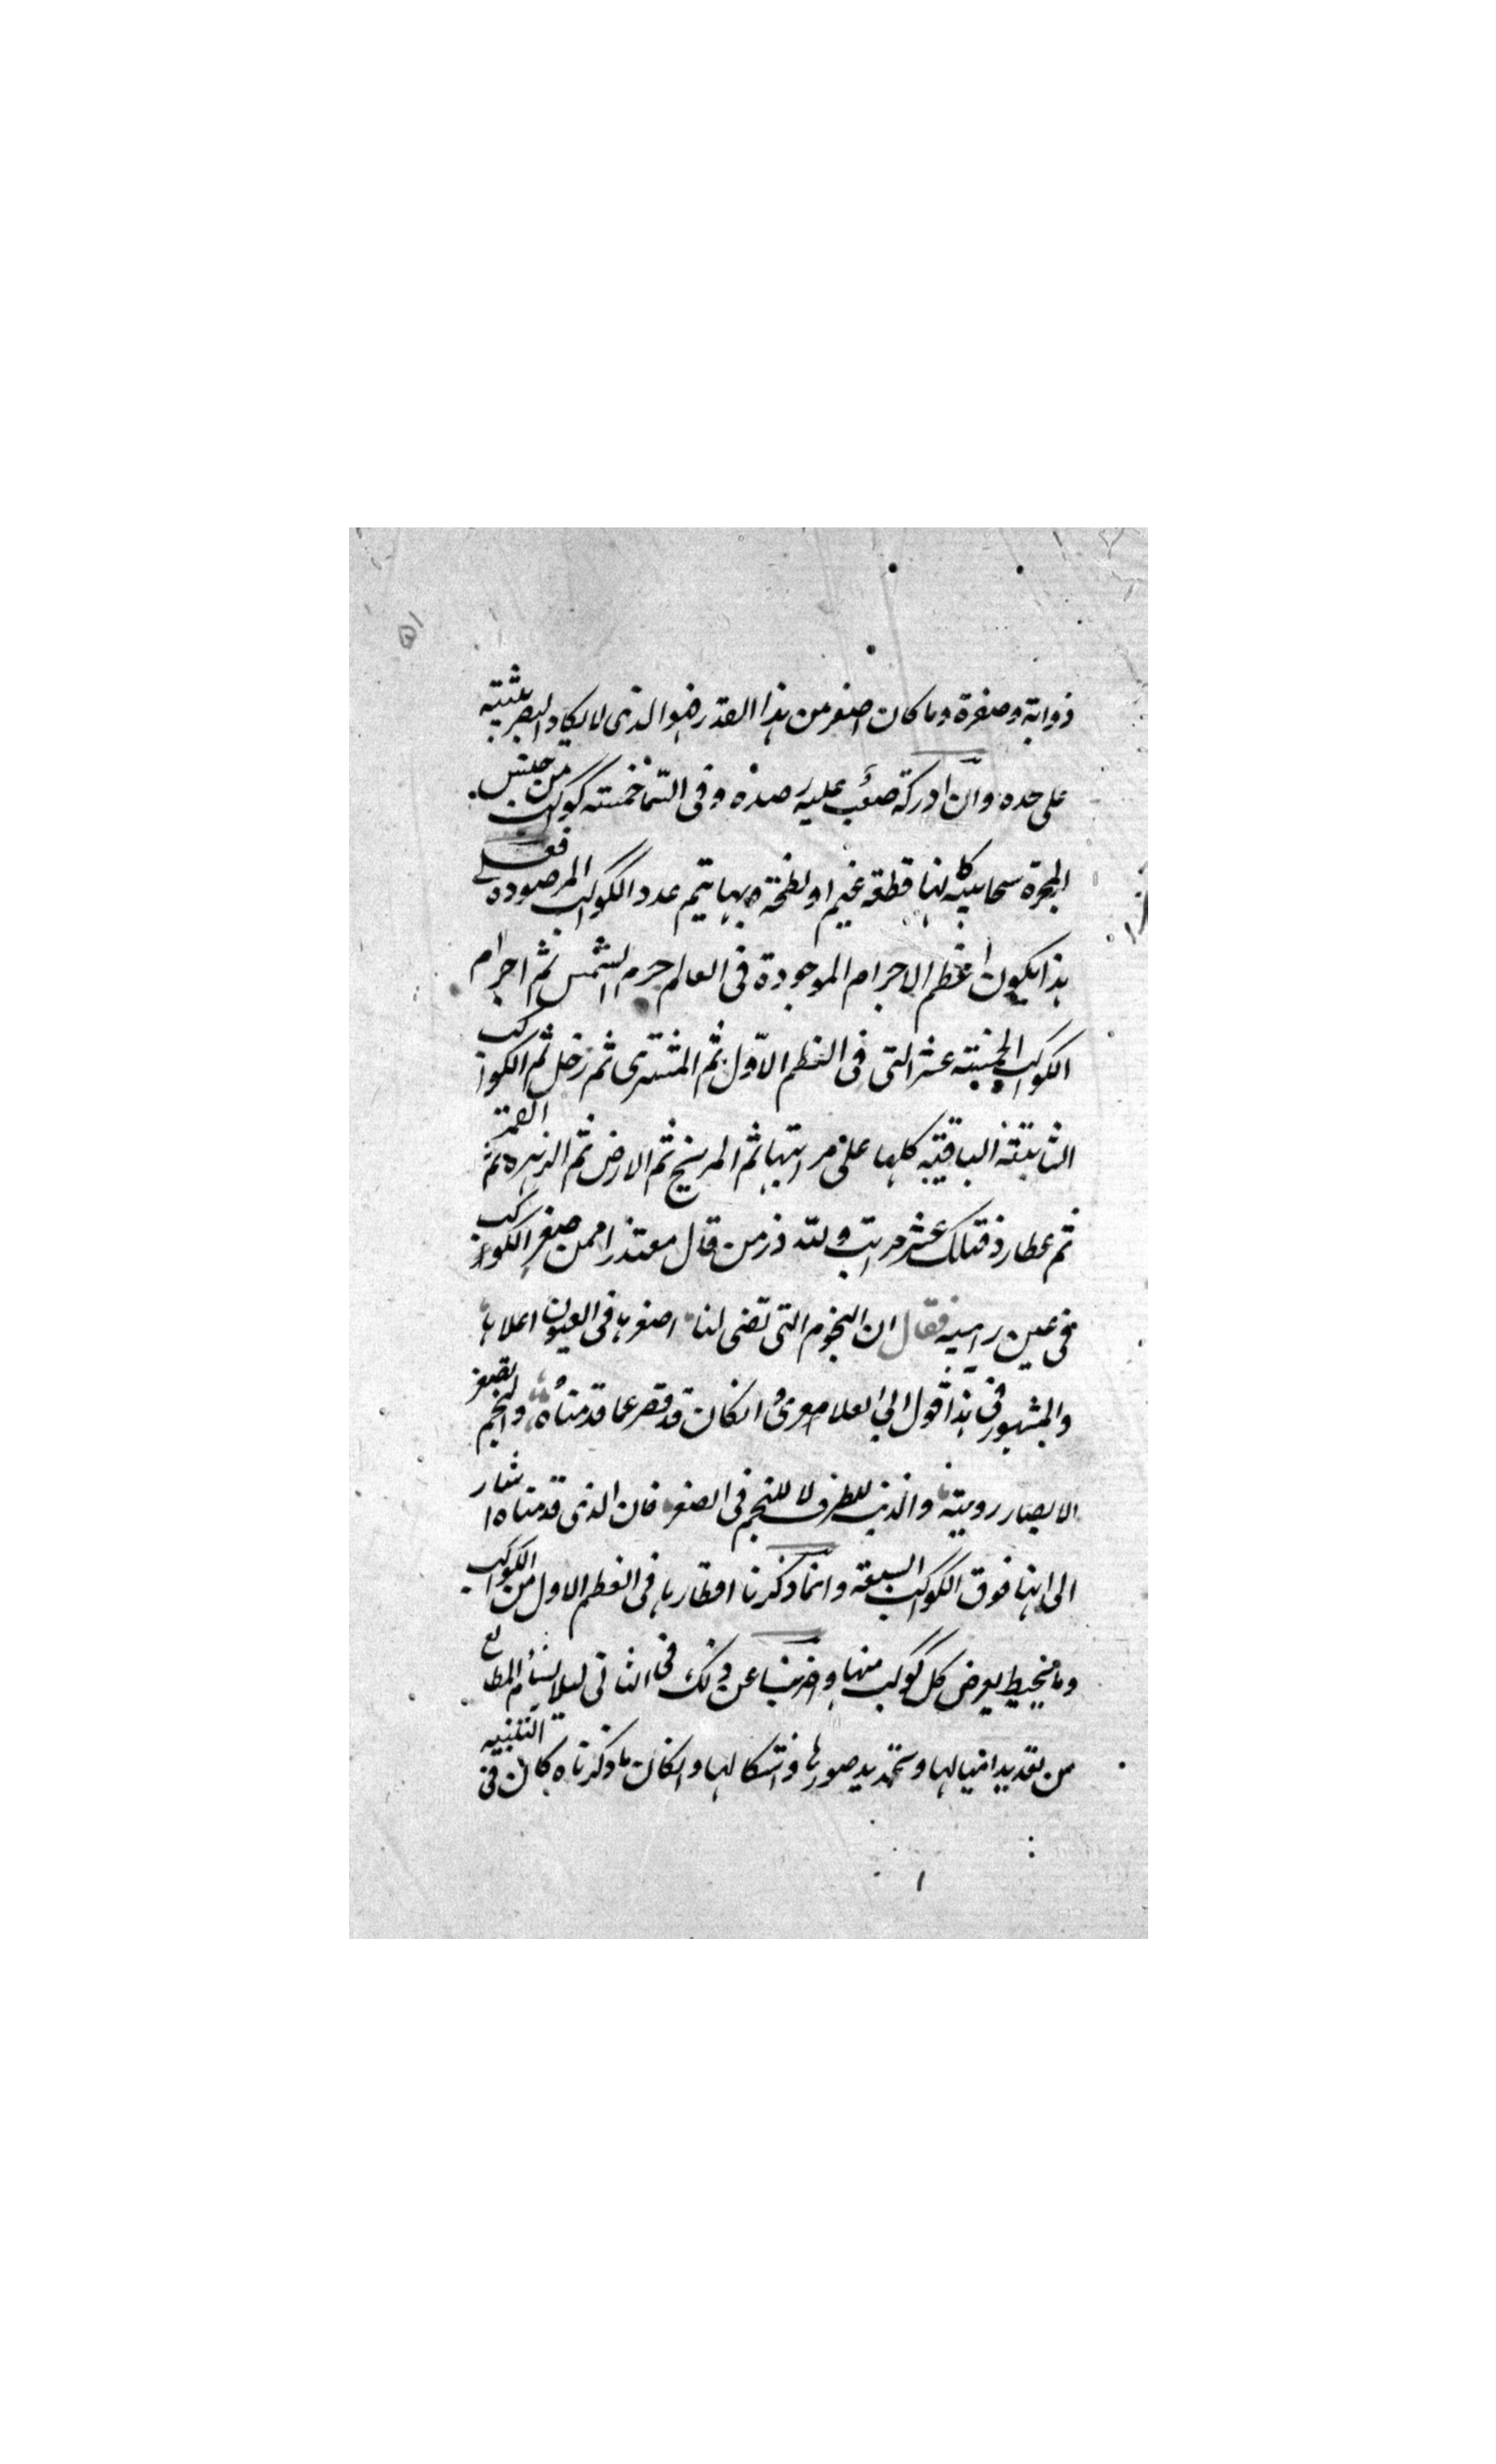 ذوابة وصفرة وما كان اصغر من هذا القدر فهو الذى لا يكاد البصر يثبته
على حده وان ادركة صعب عليه رصده وفى السما خمسته كوكب من جنس
المجرة سحابيه كانها قطعة غيم او لطخة وبها يتم عدد الكواكب المرصوده فعلى
هذا يكون اعظم الاجرام الموجودة فى العالم جرم الشمس ثم اجرام
الكواكب الخمسته عشر التى فى العظم الاوّل ثم المشترى ثم زحل ثم الكواكب
الثابتة الباقيه كلها على مراتبها ثم المريخ ثم الارض ثم الزهره ثم القمر
ثم عطارد فتلك عشر مراتب ولله در من قال معتذرا ممن صغر الكواكب
فى عين راميه فقال ان النجوم التى تضى لنا اصغرها فى العيون اعلاها
والمشهور فى هذا قول ابى العلا معرى وانكان قد قصر عما قدمناه والنجم تصغر
الابصار رويته والذنب للطرف لا للنجم فى الصغر فان الذى قدمناه اشار
الى انها فوق الكواكب السبعة وانما ذكرنا اقطارها فى العظم الاول من الكواكب
وما يحيط بعرض كل كوكب منها واضربنا عن ذلك فى الثانى ليلا يسأم المطالع
من تعديد اميالها وتمديد صورها واشكالها وانكان ما ذكرناه كان فى التنبيه